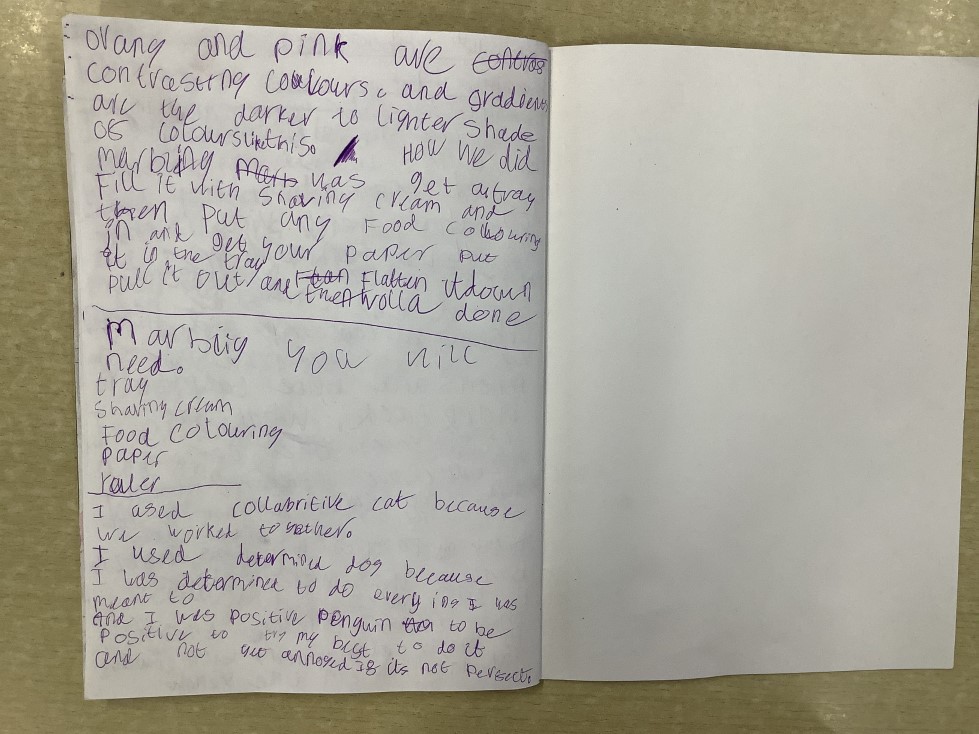 orang and pink are contras
contrasting coulours. and gradients
are the darker to lighter shade
of colours like this. How we did
marbling Marb was get a tray
Fill it with shaving cream and
then put any Food colouring
in and get your paper put
it in the tray
pull it out and Flatten it down
then wolla done
Marblig you will
need.
tray
shaving cream
Food colouring
paper
ruler
I used collabritive cat because
we worked together.
I used determined dog because
I was determined to do every ing I was
meant to
And I was positive penguin to be
positive to try my best to do it
and not get annoyed if its not perfect.